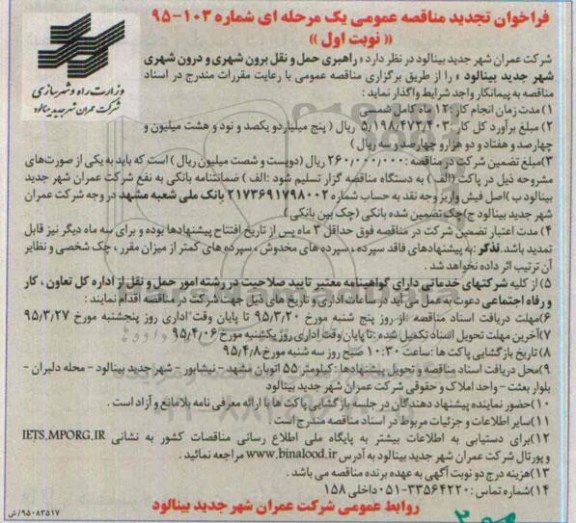 فراخوان تجدید مناقصه عمومی یک مرحله ای شماره ۱۰۳-۹۵
« نوبت اول »
وزارت راه و شهرسازی
شرکت عمران شهر جدید بینالود
شرکت عمران شهر جدید بینالود در نظر دارد « راهبری حمل و نقل برون شهری و درون شهری
شهر جدید بینالود » را از طریق برگزاری مناقصه عمومی با رعایت مقررات مندرج در اسناد
مناقصه به پیمانکار واجد شرایط واگذار نماید :
۱) مدت زمان انجام کار : ۱۲ ماه کامل شمسی
۲) مبلغ برآورد کل کار : ۵/۱۹۸/۴۷۳/۲۰۳ ریال ( پنج میلیارد و یکصد و نود و هشت میلیون و
چهارصد و هفتاد و دو هزار و چهارصد و سه ریال )
۳) مبلغ تضمین شرکت در مناقصه : ۲۶۰/۰۰۰/۰۰۰ ریال (دویست و شصت میلیون ریال ) است که باید به یکی از صورت‌های
مشروحه ذیل در پاکت (الف ) به دستگاه مناقصه گزار تسلیم شود :الف ) ضمانتنامه بانکی به نفع شرکت عمران شهر جدید
بینالود ب )اصل فیش واریز وجه نقد به حساب شماره ۲۱۷۳۶۹۱۷۹۸۰۰۲ بانک ملی شعبه مشهد در وجه شرکت عمران
شهر جدید بینالود ج)چک تضمین شده بانکی (چک بین بانکی )
۴) مدت اعتبار تضمین شرکت در مناقصه فوق حداقل ۳ ماه پس از تاریخ افتتاح پیشنهادها بوده و برای سه ماه دیگر نیز قابل
تمدید باشد.تذکر :به پیشنهادهای فاقد سپرده ، سپرده های مخدوش ، سپرده های کمتر از میزان مقرر ، چک شخصی و نظایر
آن ترتیب اثر داده نخواهد شد .
۵) از کلیه شرکتهای خدماتی دارای گواهینامه معتبر تایید صلاحیت در رشته امور حمل و نقل از اداره کل تعاون ، کار
و رفاه اجتماعی دعوت به عمل می آید در ساعات اداری و تاریخ های ذیل جهت شرکت در مناقصه اقدام نمایند :
۶)مهلت دریافت اسناد مناقصه :از روز پنج شنبه مورخ ۹۵/۳/۲۰ تا پایان وقت اداری روز پنجشنبه مورخ ۹۵/۳/۲۷
۷)آخرین مهلت تحویل اسناد تکمیل شده :تا پایان وقت اداری روز یکشنبه مورخ ۹۵/۴/۰۶
۸) تاریخ بازگشایی پاکت ها :ساعت ۱۰:۳۰ صبح روز سه شنبه مورخ ۹۵/۴/۸
۹)محل دریافت اسناد مناقصه و تحویل پیشنهادها :کیلومتر ۵۵ اتوبان مشهد - نیشابور - شهر جدید بینالود - محله دلبران -
بلوار بعثت - واحد املاک و حقوقی شرکت عمران شهر جدید بینالود
۱۰)حضور نماینده پیشنهاد دهندگان در جلسه بازگشایی پاکت ها با ارائه معرفی نامه بلامانع و آزاد است .
۱۱)سایر اطلاعات و جزئیات مربوط در اسناد مناقصه مندرج است .
۱۲)برای دستیابی به اطلاعات بیشتر به پایگاه ملی اطلاع رسانی مناقصات کشور به نشانی IETS.MPORG.IR
و پورتال شرکت عمران شهر جدید بینالود به آدرس www.binalood.ir مراجعه نمائید .
۱۳)هزینه درج دو نوبت آگهی به عهده برنده مناقصه می باشد .
۱۴)شماره تماس : ۳۳۵۶۴۲۲۰-۰۵۱ داخلی ۱۵۸
روابط عمومی شرکت عمران شهر جدید بینالود
۹۵۰۸۲۵۱۷/ش